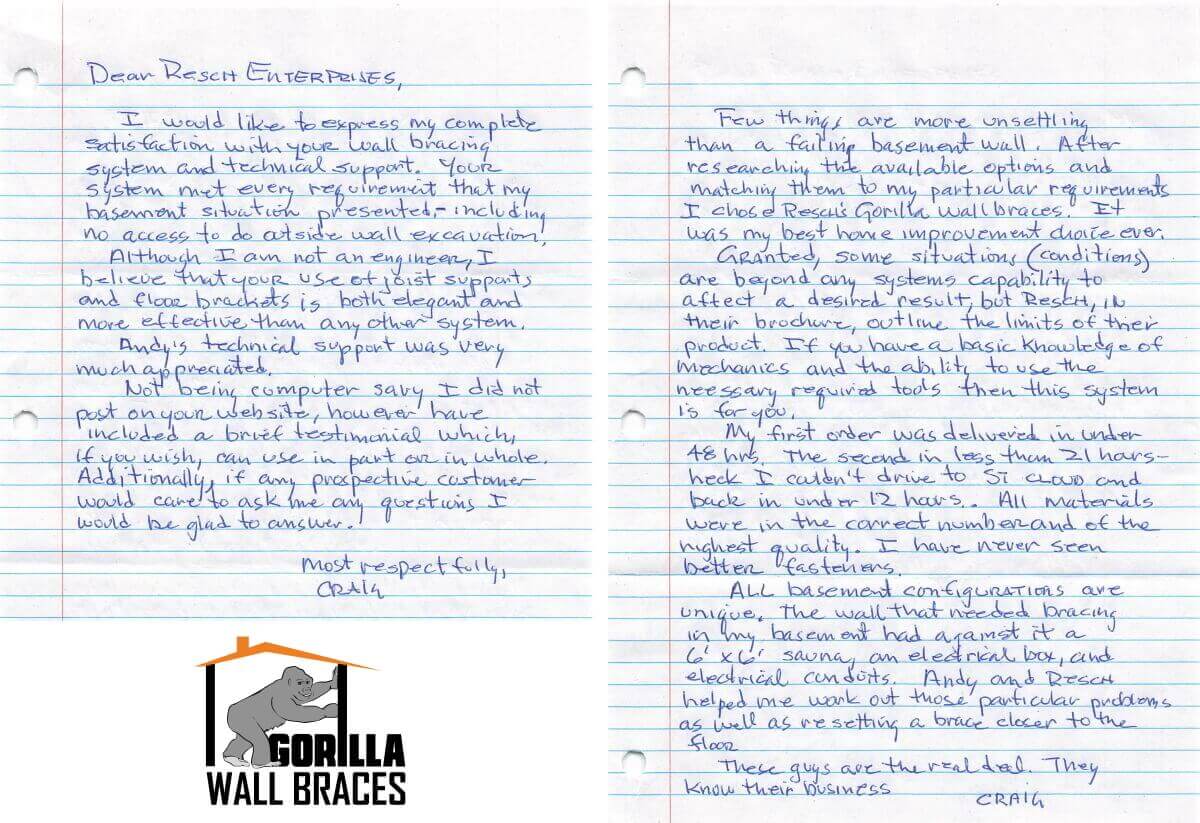 Dear RESCH ENTERPRISES,
I would like to express my complete
satisfaction with your wall bracing
system and technical support. Your
system met every requirement that my
basement situation presented,- including
no access to do outside wall excavation.
Although I am not an engineer, I
believe that your use of joist supports
and floor brackets is both elegant and
more effective than any other system.
Andy's technical support was very
much appreciated.
Not being computer savy I did not
post on your website, however have
included a brief testimonial which,
if you wish, can use in part or in whole.
Additionally, if any prospective customer
would care to ask me any questions I
would be glad to answer.
Most respectfully,
CRAIG
GORILLA
WALL BRACES
Few things are more unsettling
than a failing basement wall. After
researching the available options and
matching them to my particular requirements
I chose RESCH'S Gorilla Wall braces. It
was my best home improvement choice ever.
Granted, some situations (conditions)
are beyond any systems capability to
affect a desired result, but RESCH, IN
their brochure, outline the limits of their
product. If you have a basic knowledge of
mechanics and the ability to use the
necessary required tools then this system
is for you.
My first order was delivered in under
48 hrs. The second in less than 21 hours-
heck I couldn't drive to ST CLOUD and
back in under 12 hours.. All materials
were in the correct number and of the
highest quality. I have never seen
better fasteners.
ALL basement configurations are
unique. The wall that needed bracing
in my basement had against it a
6' x 6' sauna, an electrical box, and
electrical conduits. Andy and RESCH
helped me work out those particular problems
as well as resetting a brace closer to the
floor
These guys are the real deal. They
know their business
CRAIG